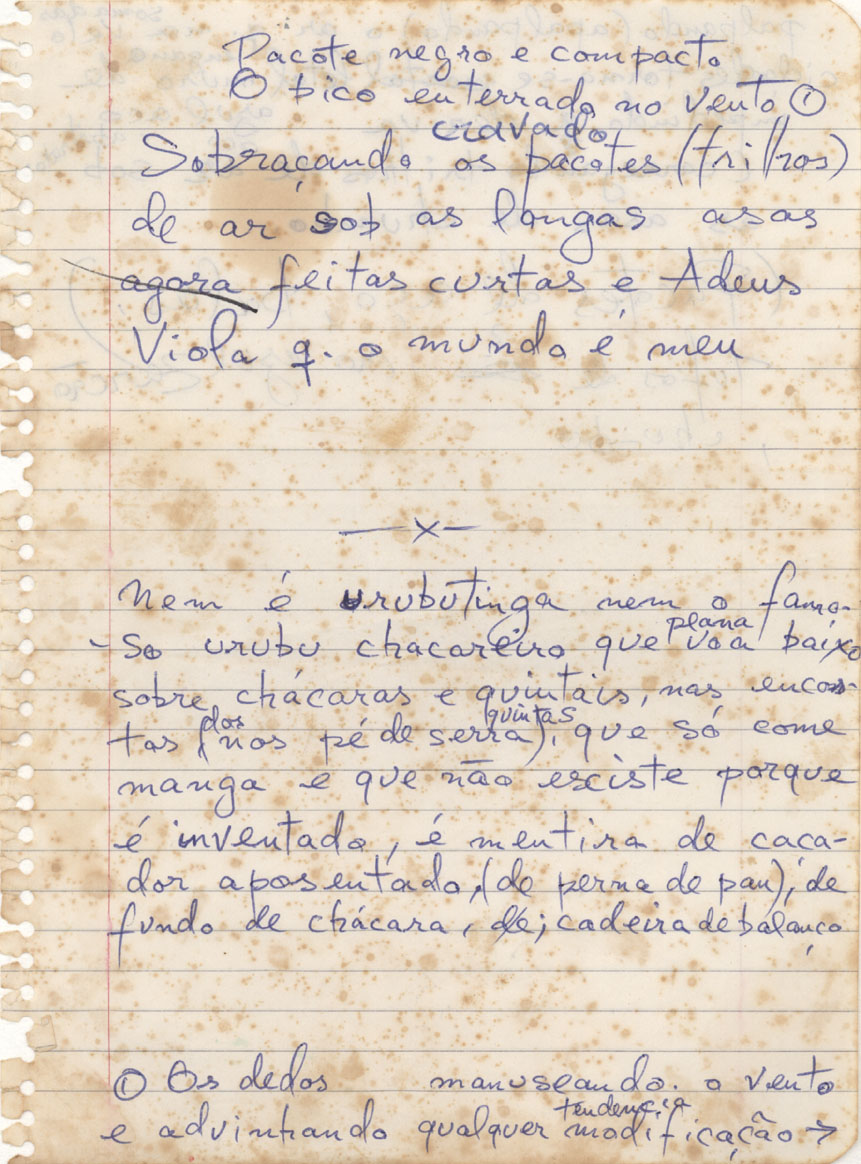 Pacote negro e compacto
O bico enterrado no vento ①
cravado
Sobraçando os pacotes (trilhos)
de ar sob as longas asas
agora feitas curtas e Adeus
Viola q. o mundo é meu
— x —
Nem é urubutinga nem o famo-
plana
- so urubu chacareiro que voa baixo
sobre chácaras e quintais, nas encos-
dos quintas
tas (nos pé de serra), que só come
manga e que não existe porque
é inventado, é mentira de caça-
dor aposentado, (de perna de pau), de
fundo de chácara, de; cadeira de balanço
① Os dedos manuseando o vento
tendencia
e advinhando qualquer modificação →